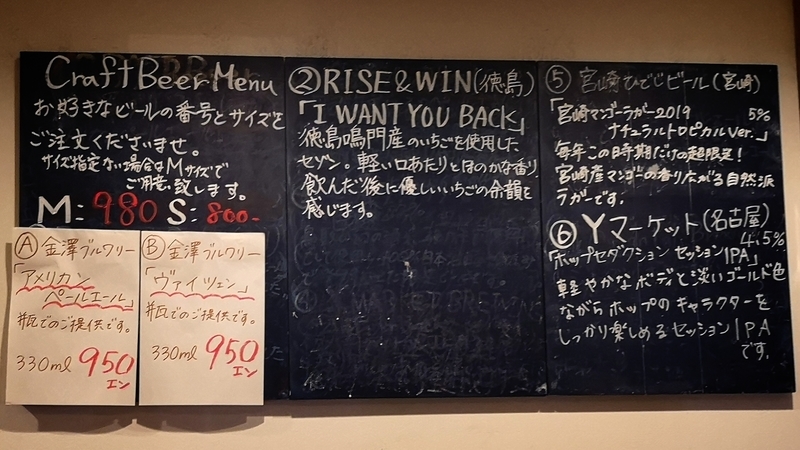 Craft Beer Menu
お好きなビールの番号とサイズを
ご注文くださいませ。
サイズ指定ない場合はMサイズで
ご用意致します。
M: 980 S: 800-
Ⓐ 金澤ブルワリー
「アメリカン
ペールエール」
瓶でのご提供です。
330ml 950
エン
Ⓑ 金澤ブルワリー
「ヴァイツェン」
瓶でのご提供です。
330ml 950
エン
② RISE & WIN (徳島)
「I WANT YOU BACK」
徳島鳴門産のいちごを使用した
セゾン。軽い口あたりとほのかな香り、
飲んだ後に優しいいちごの余韻を
感じます。
⑤ 宮崎ひでじビール (宮崎)
「宮崎マンゴーラガー2019 5%
ナチュラルトロピカルver.」
毎年この時期だけの超限定!
宮崎産マンゴーの香りひろがる自然派
ラガーです。
⑥ Yマーケット (名古屋)
4.5%
「ホップセダクション セッションIPA」
軽やかなボディと淡いゴールド色
ながらホップのキャラクターを
しっかり楽しめるセッションIPA
です。